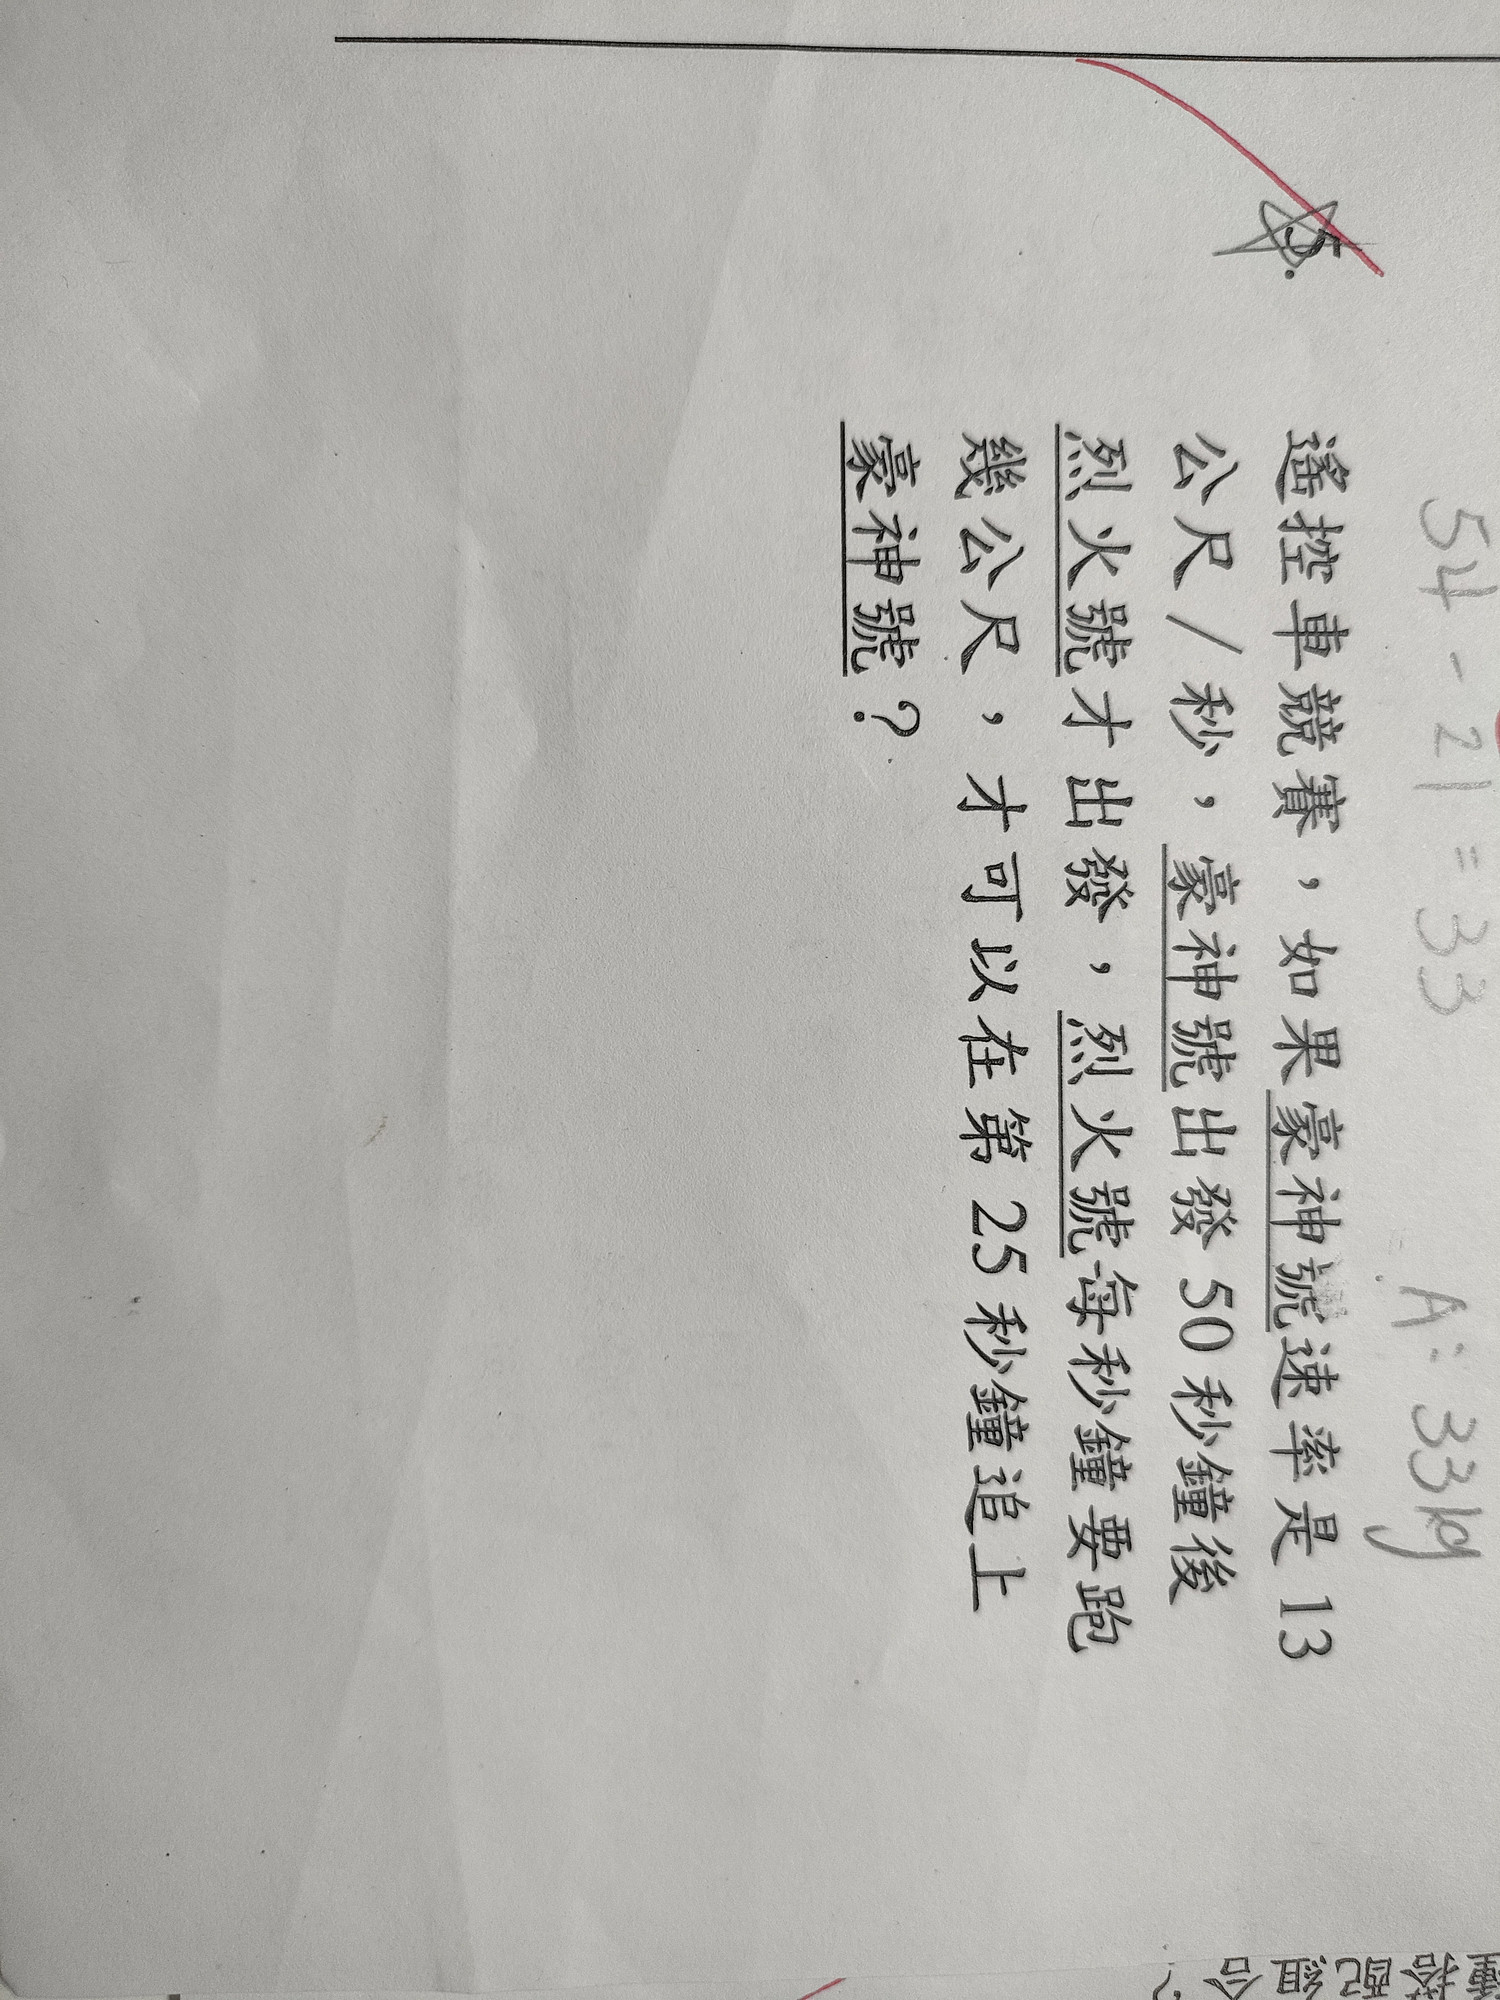 54 - 21 = 33
A: 33kg
5.
遙控車競賽，如果豪神號速率是13
公尺／秒，豪神號出發50秒鐘後
烈火號才出發，烈火號每秒鐘要跑
幾公尺，才可以在第25秒鐘追上
豪神號？
種搭配組合？